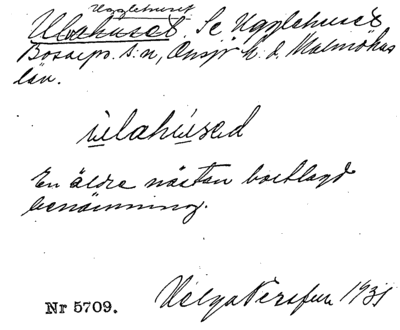 Ugglehuset
Ulahuset. Se Ugglehuset
Bosarps s:n, Onsjö h. d, Malmöhus
län.
ulahused
En äldre nästan bortlagd
benämning.
Nr 5709. Helga Persson 1931